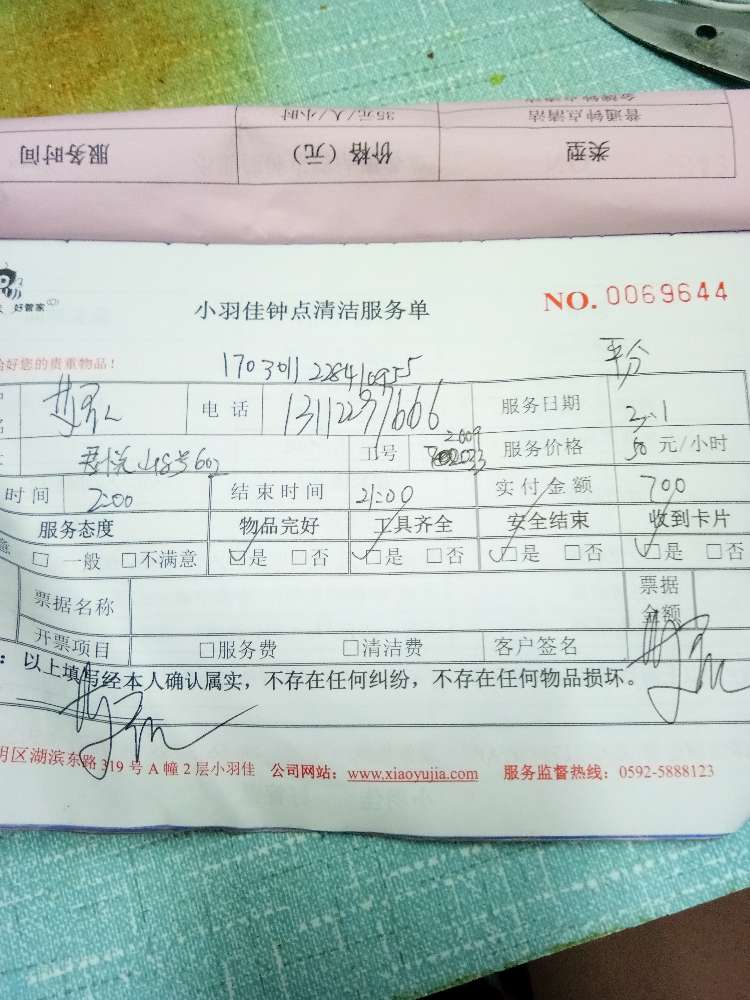 普通钟点清洁 35元/人/小时
类型 价格（元） 服务时间
好管家
小羽佳钟点清洁服务单 NO. 0069644
好您的贵重物品！
平分
电话 服务日期 2.1
工号 2009 服务价格 50 元/小时
时间 2:00 结束时间 21:00 实付金额 700
服务态度 物品完好 工具齐全 安全结束 收到卡片
□ 一般 □不满意 □是 □否 □是 □否 □是 □否 □是 □否
票据名称 票据金额
开票项目 □服务费 □清洁费 客户签名
：以上填写经本人确认属实，不存在任何纠纷，不存在任何物品损坏。
明区湖滨东路 319 号 A 幢 2 层小羽佳 公司网站：www.xiaoyujia.com 服务监督热线：0592-5888123